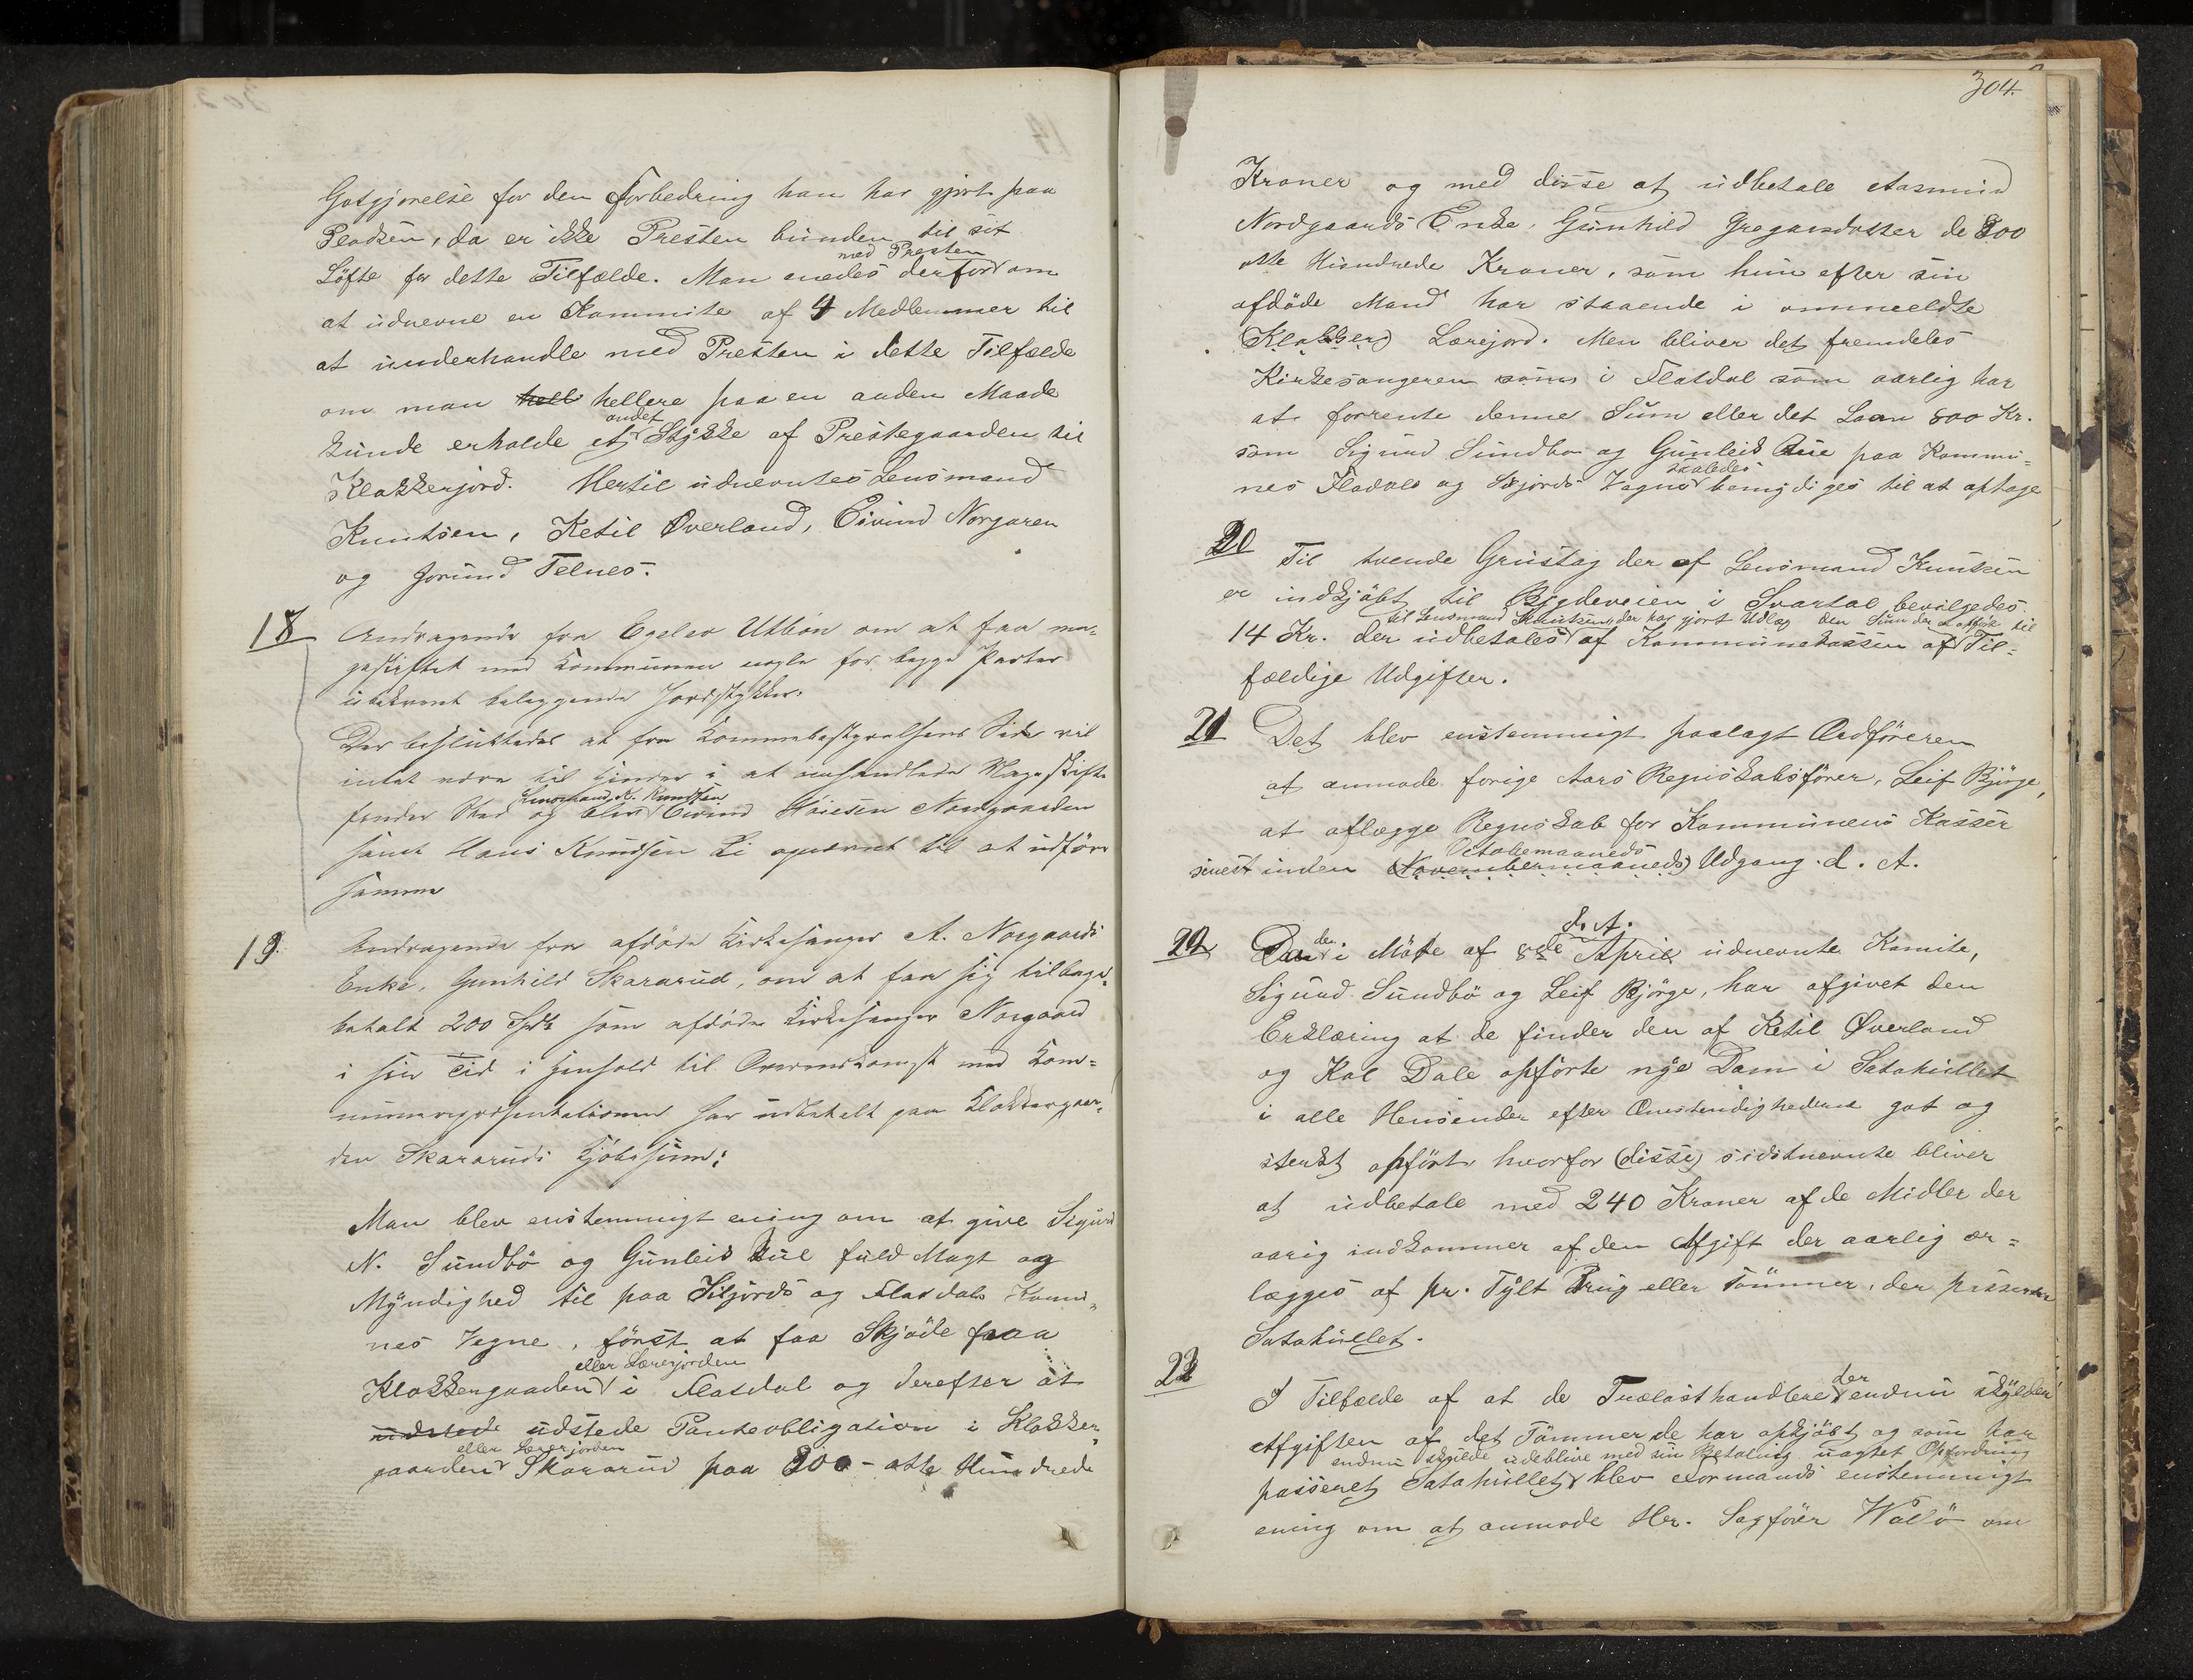 Gotgjørelse for den Forbedring han har gjort paa
Pladsen, da er ikke Presten bunden til sit
med Presten
Löfte for dette Tilfælde. Man enedes derfor om
at udnevne en Kommite af 4 Medlemmer til
at underhandle med Presten i dette Tilfælde
om man hell hellere paa en anden Maade
andet
kunde erholde et Stykke af Prestegaarden til
Klokkerjord. Hertil udnevntes Lensmand
Knutsen, Ketil Øverland, Eivind Norgaren
og Jorund Telnes.
18 Andragende fra Egelev Utbøn om at faa ma-
geskiftet med Kommunen nogle for begge Parter
ubekvemt beliggende Jordstykker.
Der besluttedes at fra Kommebestyrelsens Side vil
intet være til Hinder i at Mageskifte
finder Sted og blev Eivind Nordgaarden
Lensmand K. Knudsen
samt Hans Knudsen Li opnævnt til at udføre
samme
19. Andragende fra afdøde Kirkesanger A. Norgaards
Enke, Gunhild Skararud, om at faa sig tilbage-
betalt 200 Spd som afdøde Kirkesanger Norgaard
i sin Tid i Henhold til Overenskomst med Kom-
munerepresentationen har udbetalt paa Klokkergaar-
den Skararuds Kjøbesum:
Man blev enstemmigt ening om at give Sigurd
N. Sundbö og Gunleid fuld Magt og
Myndighed til paa Siljords og Flatdals Kommu-
nes Vegne, först at faa Skjöde paa
eller Lærerjorden
Klokkergaarden i Flatdal og derefter at
udstede udstede Panteobligation i Klokker-
eller Lærerjorden
gaarden Skararud paa 800 - otte Hundrede
304.
Kroner og med disse at udbetale Aasmund
Nordgaards Enke, Gunhild Gregarsdatter de 800
otte Hundrede Kroner, som hun efter sin
afdöde Mand har staaende i ommeldte
(Klokker) Lærejord. Men bliver det fremdeles
Kirkesangeren som i Flatdal som aarlig har
at forrente denne Sum eller det Laan 800 Kr.
som Sigurd Sundbö og Gunleid paa Kommu-
saaledes
nes Fladals og Skjords Vegne bemydiges til at optage
20 Til tvende Grustag der af Lensmand Knutsen
er indkjöbt til Bygdeveien i Svartdal bevilgedes
til Lensmand Knutsen, der har gjort Udlag den Sum der opförte til
14 Kr. der udbetales af Kommunekassen af Til-
fældige Udgifter.
21 Det blev enstemmigt paalagt Ordföreren
at anmode forige Aars Regnskabsförer, Leif Björge,
at aflægge Regnskab for Kommunens Kasser
Octobemaaneds
senest inden (Novembermaaneds) Udgang d. A.
d. A.
22 Den i Möte af 8de April udnevnte Komite,
den
Sigurd Sundbö og Leif Björge, har afgivet den
Erklæring at de finder den af Ketil Øverland
og Kol Dale opförte nye Dam i Satahullet
i alle Hensender efter Omstendighederne got og
sterkt opfört hvorfor (disse) sidstnevnte bliver
at udbetale med 240 Kroner af de Midler der
aarig indkommer af den Afgift der aarlig er-
lægges af pr. Tylt Brug eller Tömmer, der passerer
Satahullet.
23
I Tilfælde af at de Trælasthandlere endnu skylder
der
Afgiften af det Tömmer de har opkjöbt og som har
endnu skylde udeblive med sin Betaling uagtet Opfordring
passeret Satahullet, blev Formands enstemmigt
ening om at anmode Hr. Sagförer Wallö om